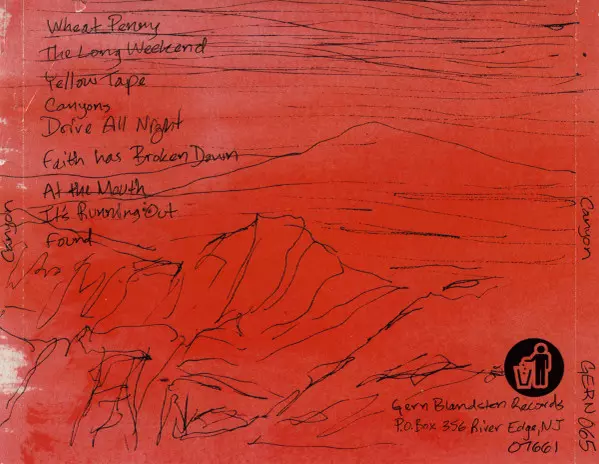 Wheat Penny
The Long Weekend
Yellow Tape
Canyons
Drive All Night
Faith has Broken Down
At the Mouth
It's Running Out
Found
Canyon
Canyon
GERN 065
Gern Blandsten Records
P.O. Box 356 River Edge, NJ
07661